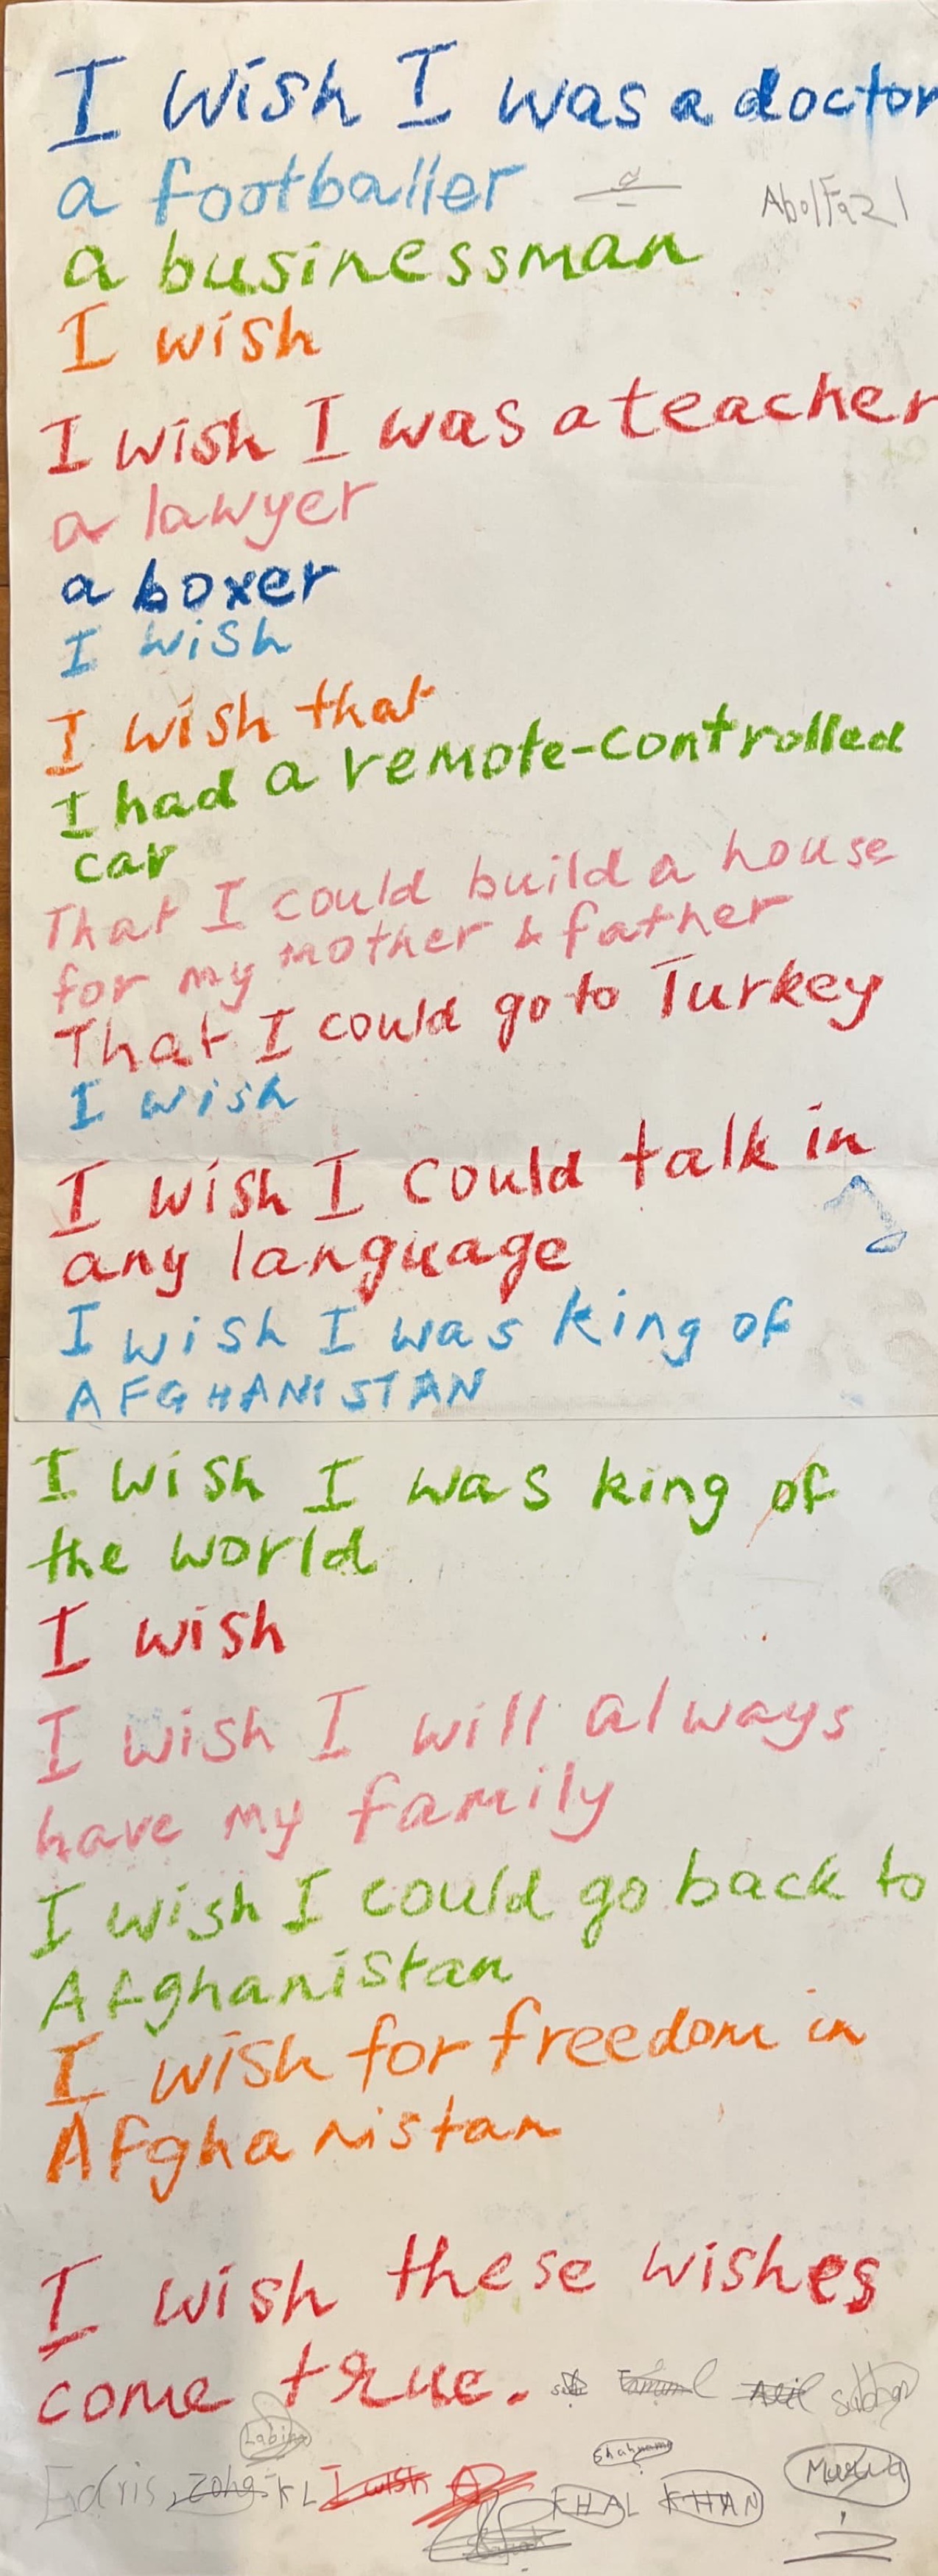 I wish I was a doctor
a footballer
AbolFazl
a businessman
I wish
I wish I was a teacher
a lawyer
a boxer
I wish
I wish that
I had a remote-controlled
car
That I could build a house
for my mother & father
That I could go to Turkey
I wish
I wish I could talk in
any language
I wish I was king of
AFGHANISTAN
I wish I was king of
the world
I wish
I wish I will always
have my family
I wish I could go back to
Afghanistan
I wish for freedom in
Afghanistan
I wish these wishes
come true.
Edris
I wish
KHAL KHAN